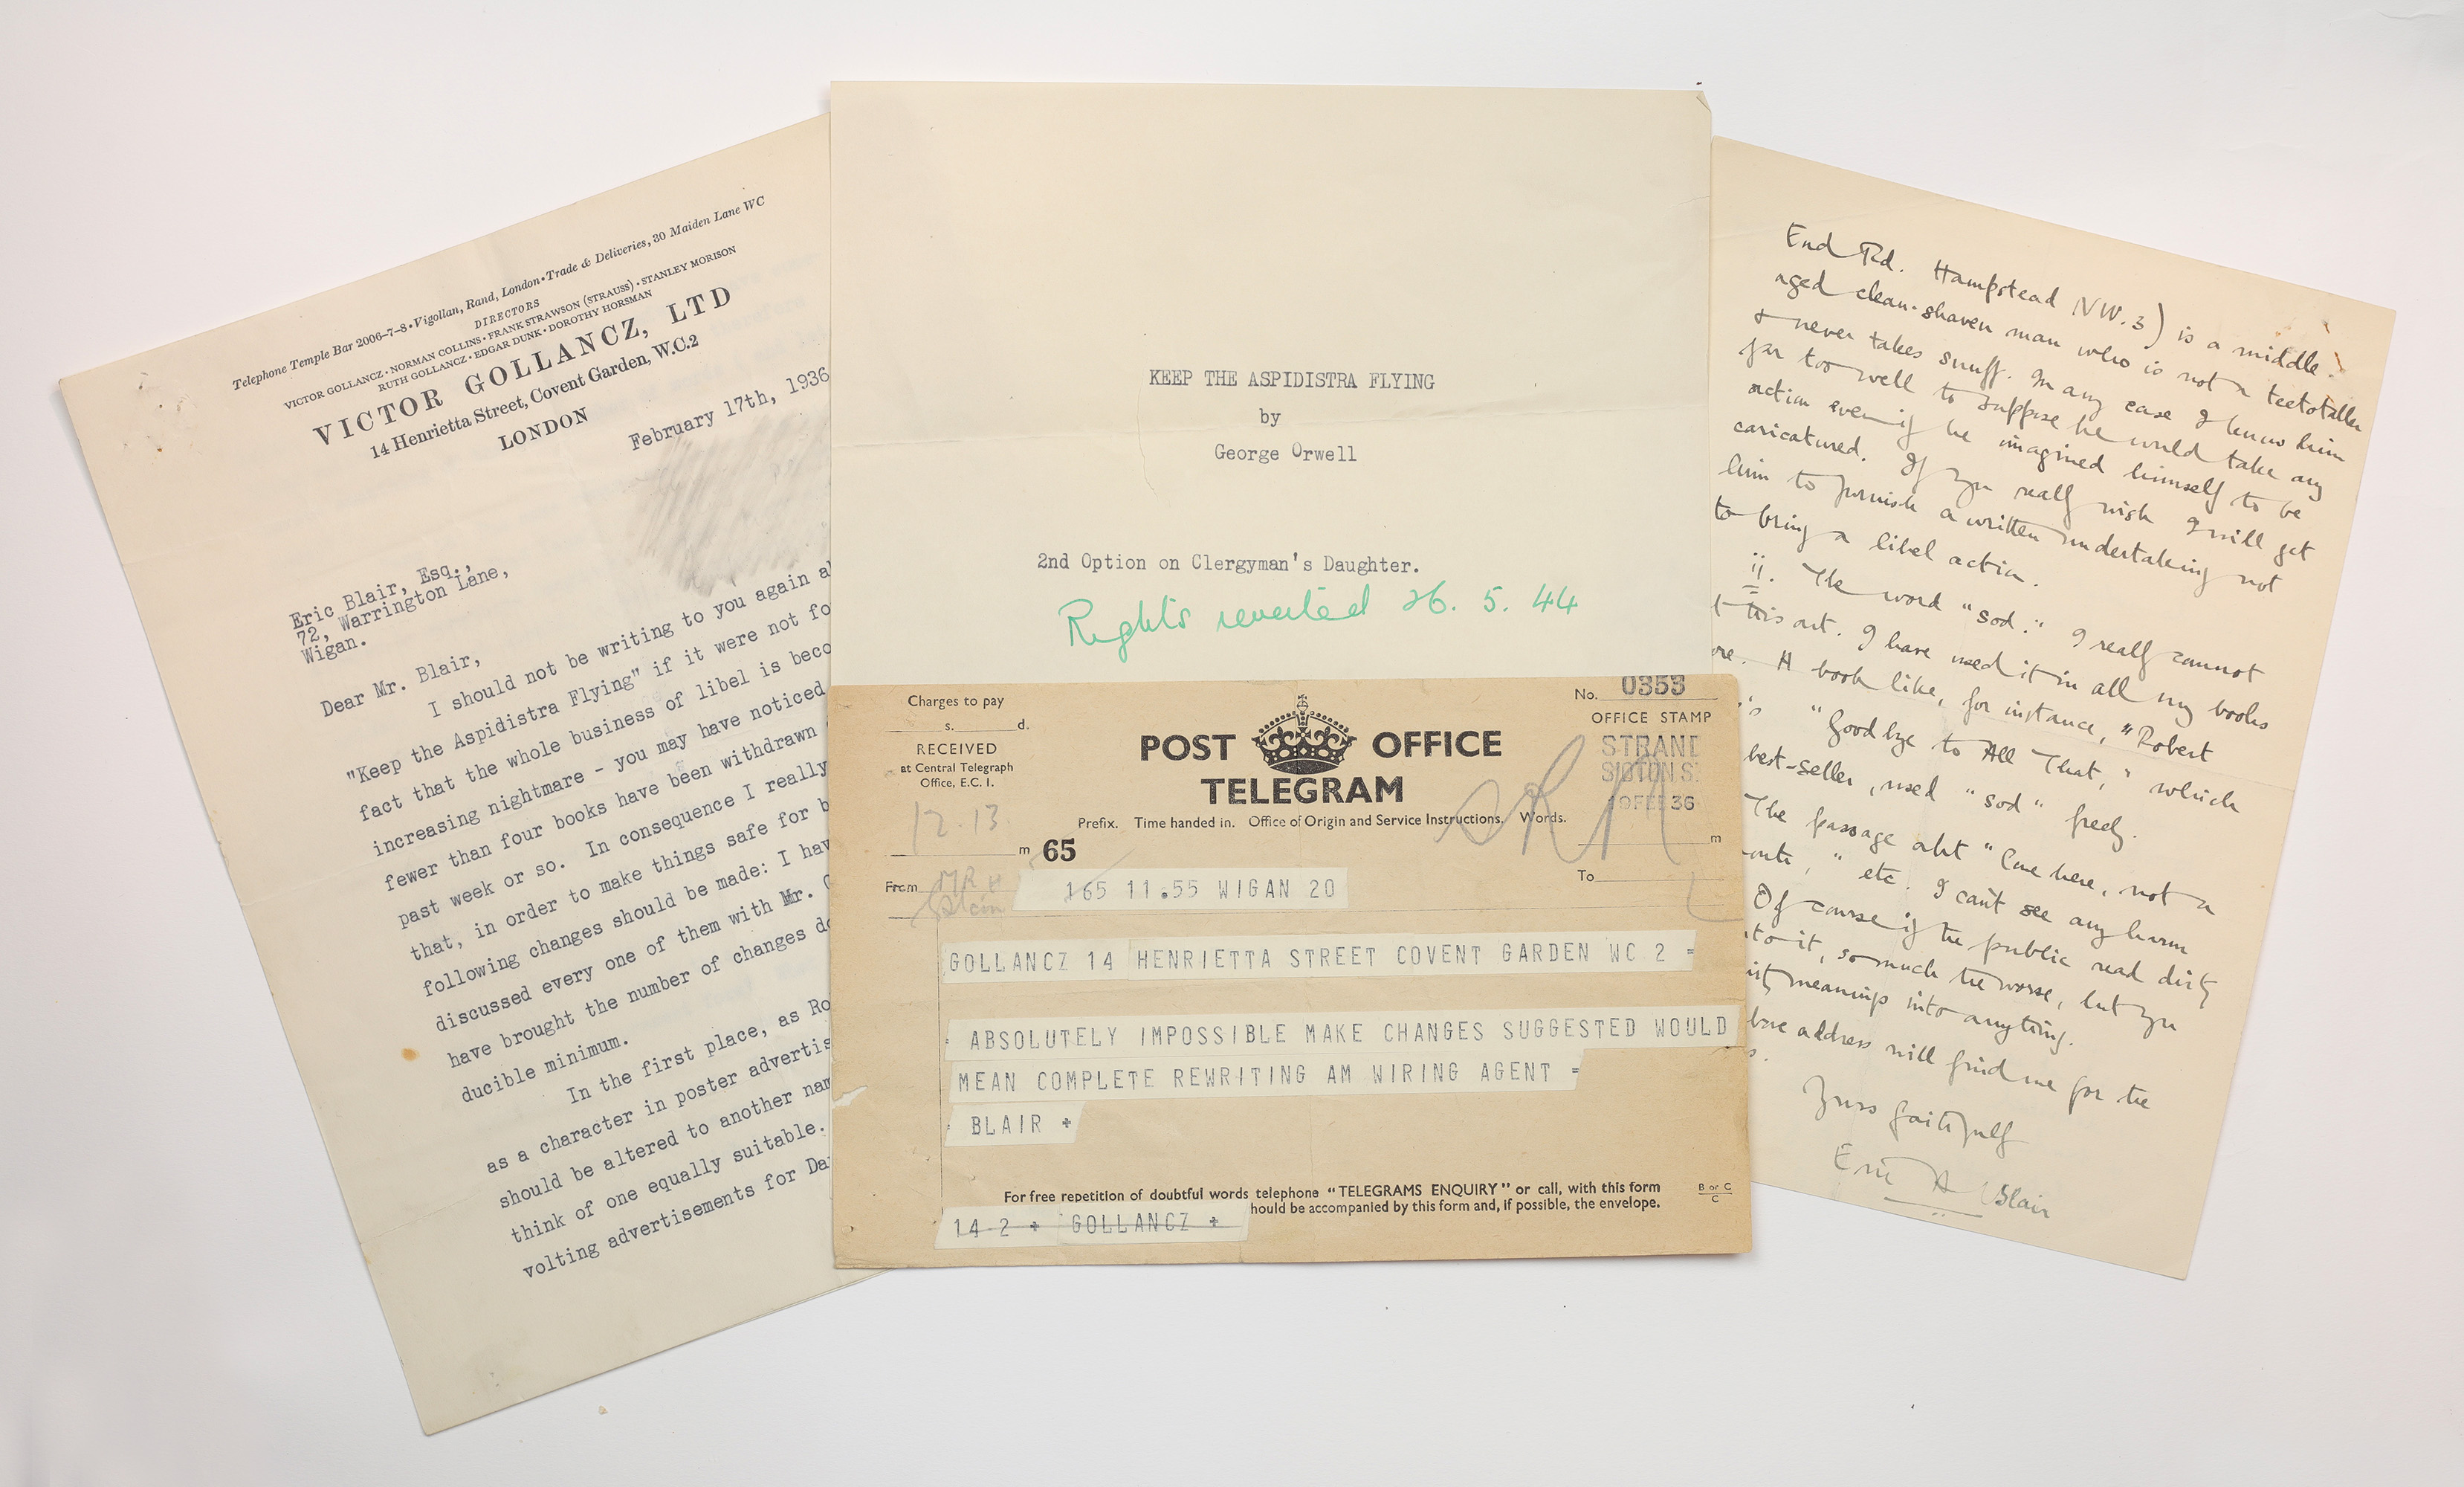 Telephone Temple Bar 2006-7-8 • Vigollan, Rand, London • Trade & Deliveries, 30 Maiden Lane WC
DIRECTORS
VICTOR GOLLANCZ • NORMAN COLLINS • FRANK STRAWSON (STRAUSS) • STANLEY MORISON
RUTH GOLLANCZ • EDGAR DUNK • DOROTHY HORSMAN
VICTOR GOLLANCZ, LTD
14 Henrietta Street, Covent Garden, W.C.2
LONDON
February 17th, 1936
Eric Blair, Esq.,
72, Warrington Lane,
Wigan.
Dear Mr. Blair,
I should not be writing to you again a
"Keep the Aspidistra Flying" if it were not fo
fact that the whole business of libel is beco
increasing nightmare - you may have noticed
fewer than four books have been withdrawn
past week or so. In consequence I really
that, in order to make things safe for b
following changes should be made: I hav
discussed every one of them with Mr.
have brought the number of changes do
ducible minimum.
In the first place, as Ro
as a character in poster advertis
should be altered to another nam
think of one equally suitable.
volting advertisements for Da
KEEP THE ASPIDISTRA FLYING
by
George Orwell
2nd Option on Clergyman's Daughter.
Rights reverted 26. 5. 44
Charges to pay
s. d.
RECEIVED
at Central Telegraph
Office, E.C. 1.
POST OFFICE
TELEGRAM
No. 0353
OFFICE STAMP
STRAND
19 FEB 36
Prefix. Time handed in. Office of Origin and Service Instructions. Words.
12.13
m 65
m
From
To
165 11.55 WIGAN 20
GOLLANCZ 14 HENRIETTA STREET COVENT GARDEN WC 2 =
ABSOLUTELY IMPOSSIBLE MAKE CHANGES SUGGESTED WOULD
MEAN COMPLETE REWRITING AM WIRING AGENT =
BLAIR +
For free repetition of doubtful words telephone "TELEGRAMS ENQUIRY" or call, with this form
hould be accompanied by this form and, if possible, the envelope.
B or C
C
14 2 + GOLLANCZ +
End Rd. Hampstead NW.3) is a middle-
aged clean-shaven man who is not a teetotaller
& never takes snuff. In any case I know him
far too well to suppose he would take any
action even if he imagined himself to be
caricatured. If you really wish I will get
him to furnish a written undertaking not
to bring a libel action.
ii. The word "sod." I really cannot
t this out. I have used it in all my books
ore. A book like, for instance, "Robert
's "Goodbye to All That," which
best-seller, used "sod" freely.
The passage abt "Come here, not a
" etc. I can't see any harm
Of course if the public read dirty
to it, so much the worse, but you
meanings into anything.
bove address will find me for the
s.
Yours faithfully
Eric A Blair